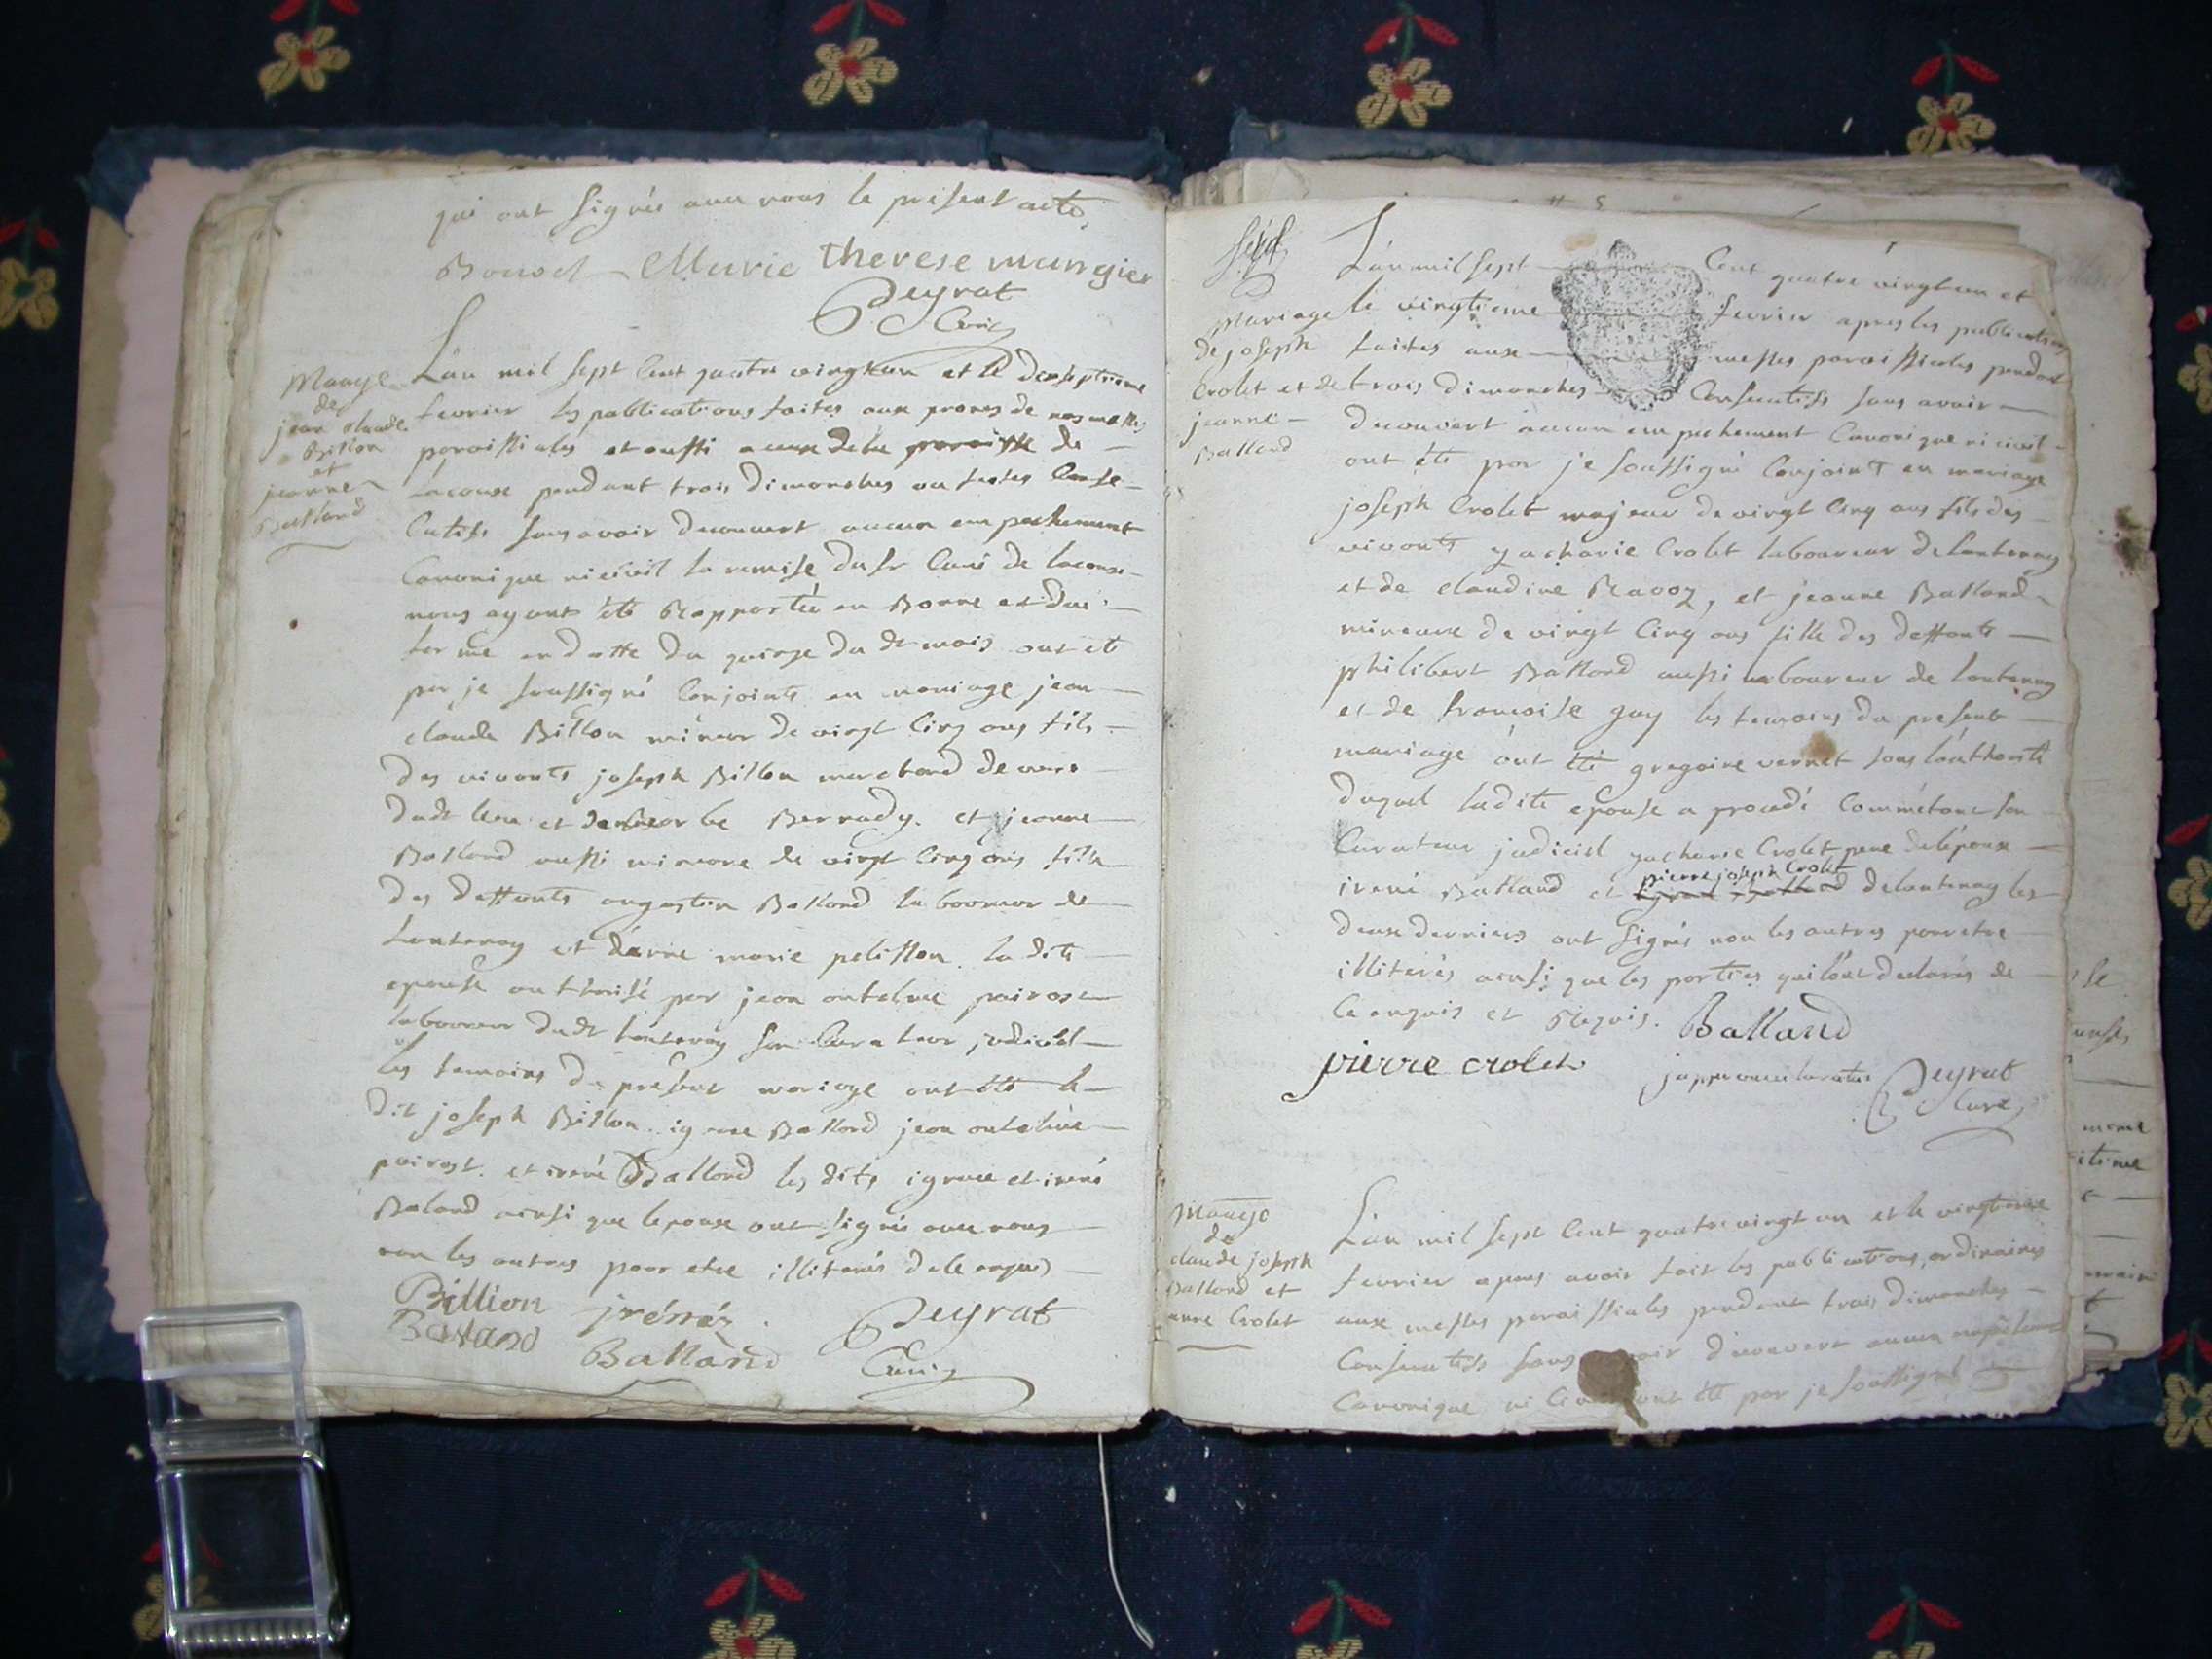 qui ont signés avec nous le present acte
Marie therese mungier
Peyrat
Curé
Mariage
de
jean claude
Billon
et
jeanne
Balland
L'an mil sept cent quatre vingt un et le dixseptieme
fevrier les publications faites aux prones de nos messes
paroissiales et aussi a ceux de la paroisse de
Lacoux pendant trois dimanches ou festes conse-
cutifs sans avoir decouvert aucun empechement
Canonique ni civil la remise du sr Curé de lacoux
nous ayant été Rapportée en Bonne et due
forme en datte du quinze du dt mois ont eté
par je soussigné Conjoints en mariage jean
claude Billon mineur de vingt cinq ans fils
des vivants joseph Billon marchand
dudt lieu et Bernady. et jeanne
Balland aussi mineure de vingt cinq ans fille
des deffunts augustin Balland laboureur de
Lantenay et danne marie pelisson. la dite
epouse authorisé par jean antelme
laboureur dudt lantenay son Curateur judiciel
les temoins du present mariage ont été le
dit joseph Billon. ignace Balland jean antelme
et irené Balland les dits ignace et irené
Baland ainsi que lepoux ont signés avec nous
non les autres pour etre illiterés de ce enquis
Billion jrénéz Peyrat
Balland Balland Curé
Mariage
de joseph
Crolet et de
jeanne
Balland
L'an mil sept Cent quatre vingt un et
le vingtieme fevrier apres les publications
faites aux messes paroissiales pendant
trois dimanches Consecutifs sans avoir
decouvert aucun empechement Canonique ni civil
ont été par je soussigné Conjoints en mariage
joseph Crolet majeur de vingt cinq ans fils des
vivants yacharie Crolet laboureur de lantenay
et de claudine Ravoz, et jeanne Balland
mineure de vingt cinq ans fille des deffunts
philibert Balland aussi laboureur de lantenay
et de francoise guy les temoins du present
mariage ont été gregoire vernet sous l'authorité
duquel ladite epouse a procedé Comme etant son
Curateur judiciel yacharie Crolet pere de lépoux
pierre joseph Crolet
irené Balland et de lantenay les
deux derniers ont signés non les autres pour etre
illiterés ainsi que les parties qui l'ont declarés de
Ce enquis et Requis. Balland
pierre crolet Peyrat
Curé
Mariage
de
claude joseph
Balland et
anne Crolet
L'an mil sept Cent quatre vingt un et le vingtieme
fevrier apres avoir fait les publications ordinaires
aux messes paroissiales pendant trois dimanches
Consecutifs sans avoir decouvert aucun
Canonique ni civil ont été par je soussigné